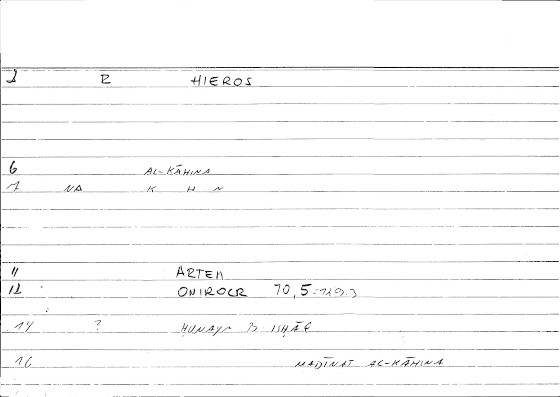 1 R HIEROS
6 AL-KĀHINA
7 NA K H N
11 ARTEM
12 ONIROCR 70,5 :129.3
14 ? ḤUNAYN B ISḤĀQ
16 MADĪNAT AL-KĀHINA